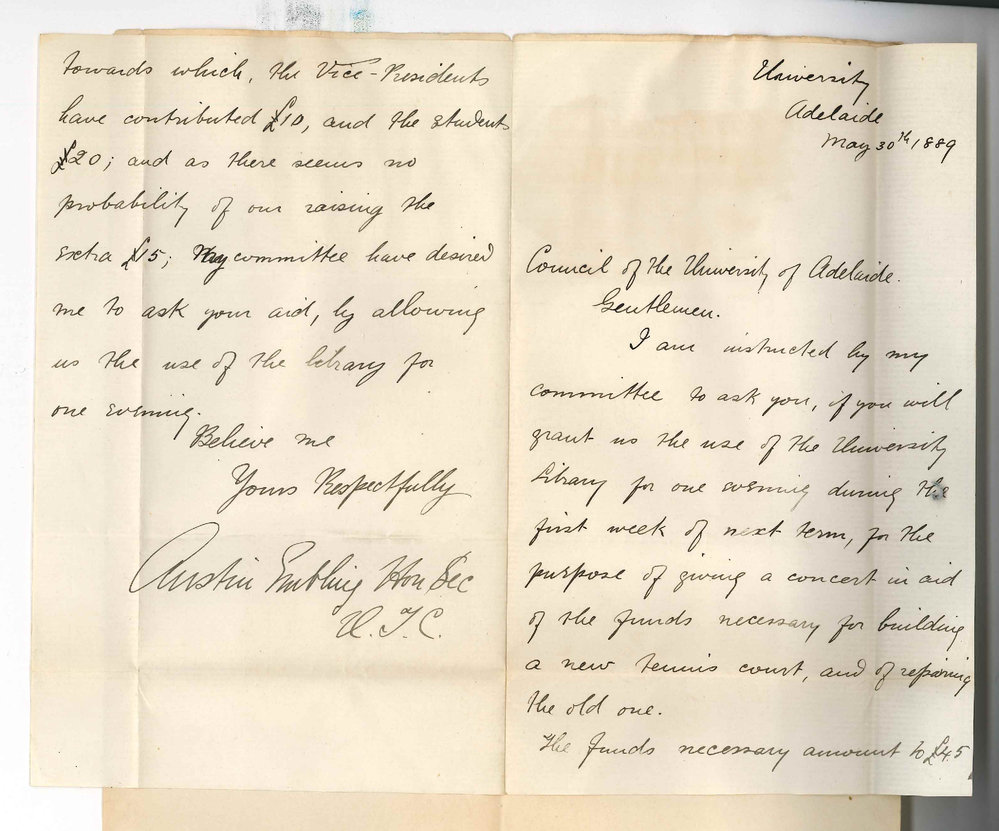 University
Adelaide
May 30th 1889
Council of the University of Adelaide.
Gentlemen.
I am instructed by my
committee to ask you, if you will
grant us the use of the University
Library for one evening during the
first week of next term, for the
purpose of giving a concert in aid
of the funds necessary for building
a new tennis court, and of repairing
the old one.
The funds necessary amount to £45
towards which, the Vice-Presidents
have contributed £10, and the students
£20; and as there seems no
probability of our raising the
extra £15; my committee have desired
me to ask your aid, by allowing
us the use of the library for
one evening.
Believe me
Yours Respectfully
Austin Embling Hon Sec
U.T.C.